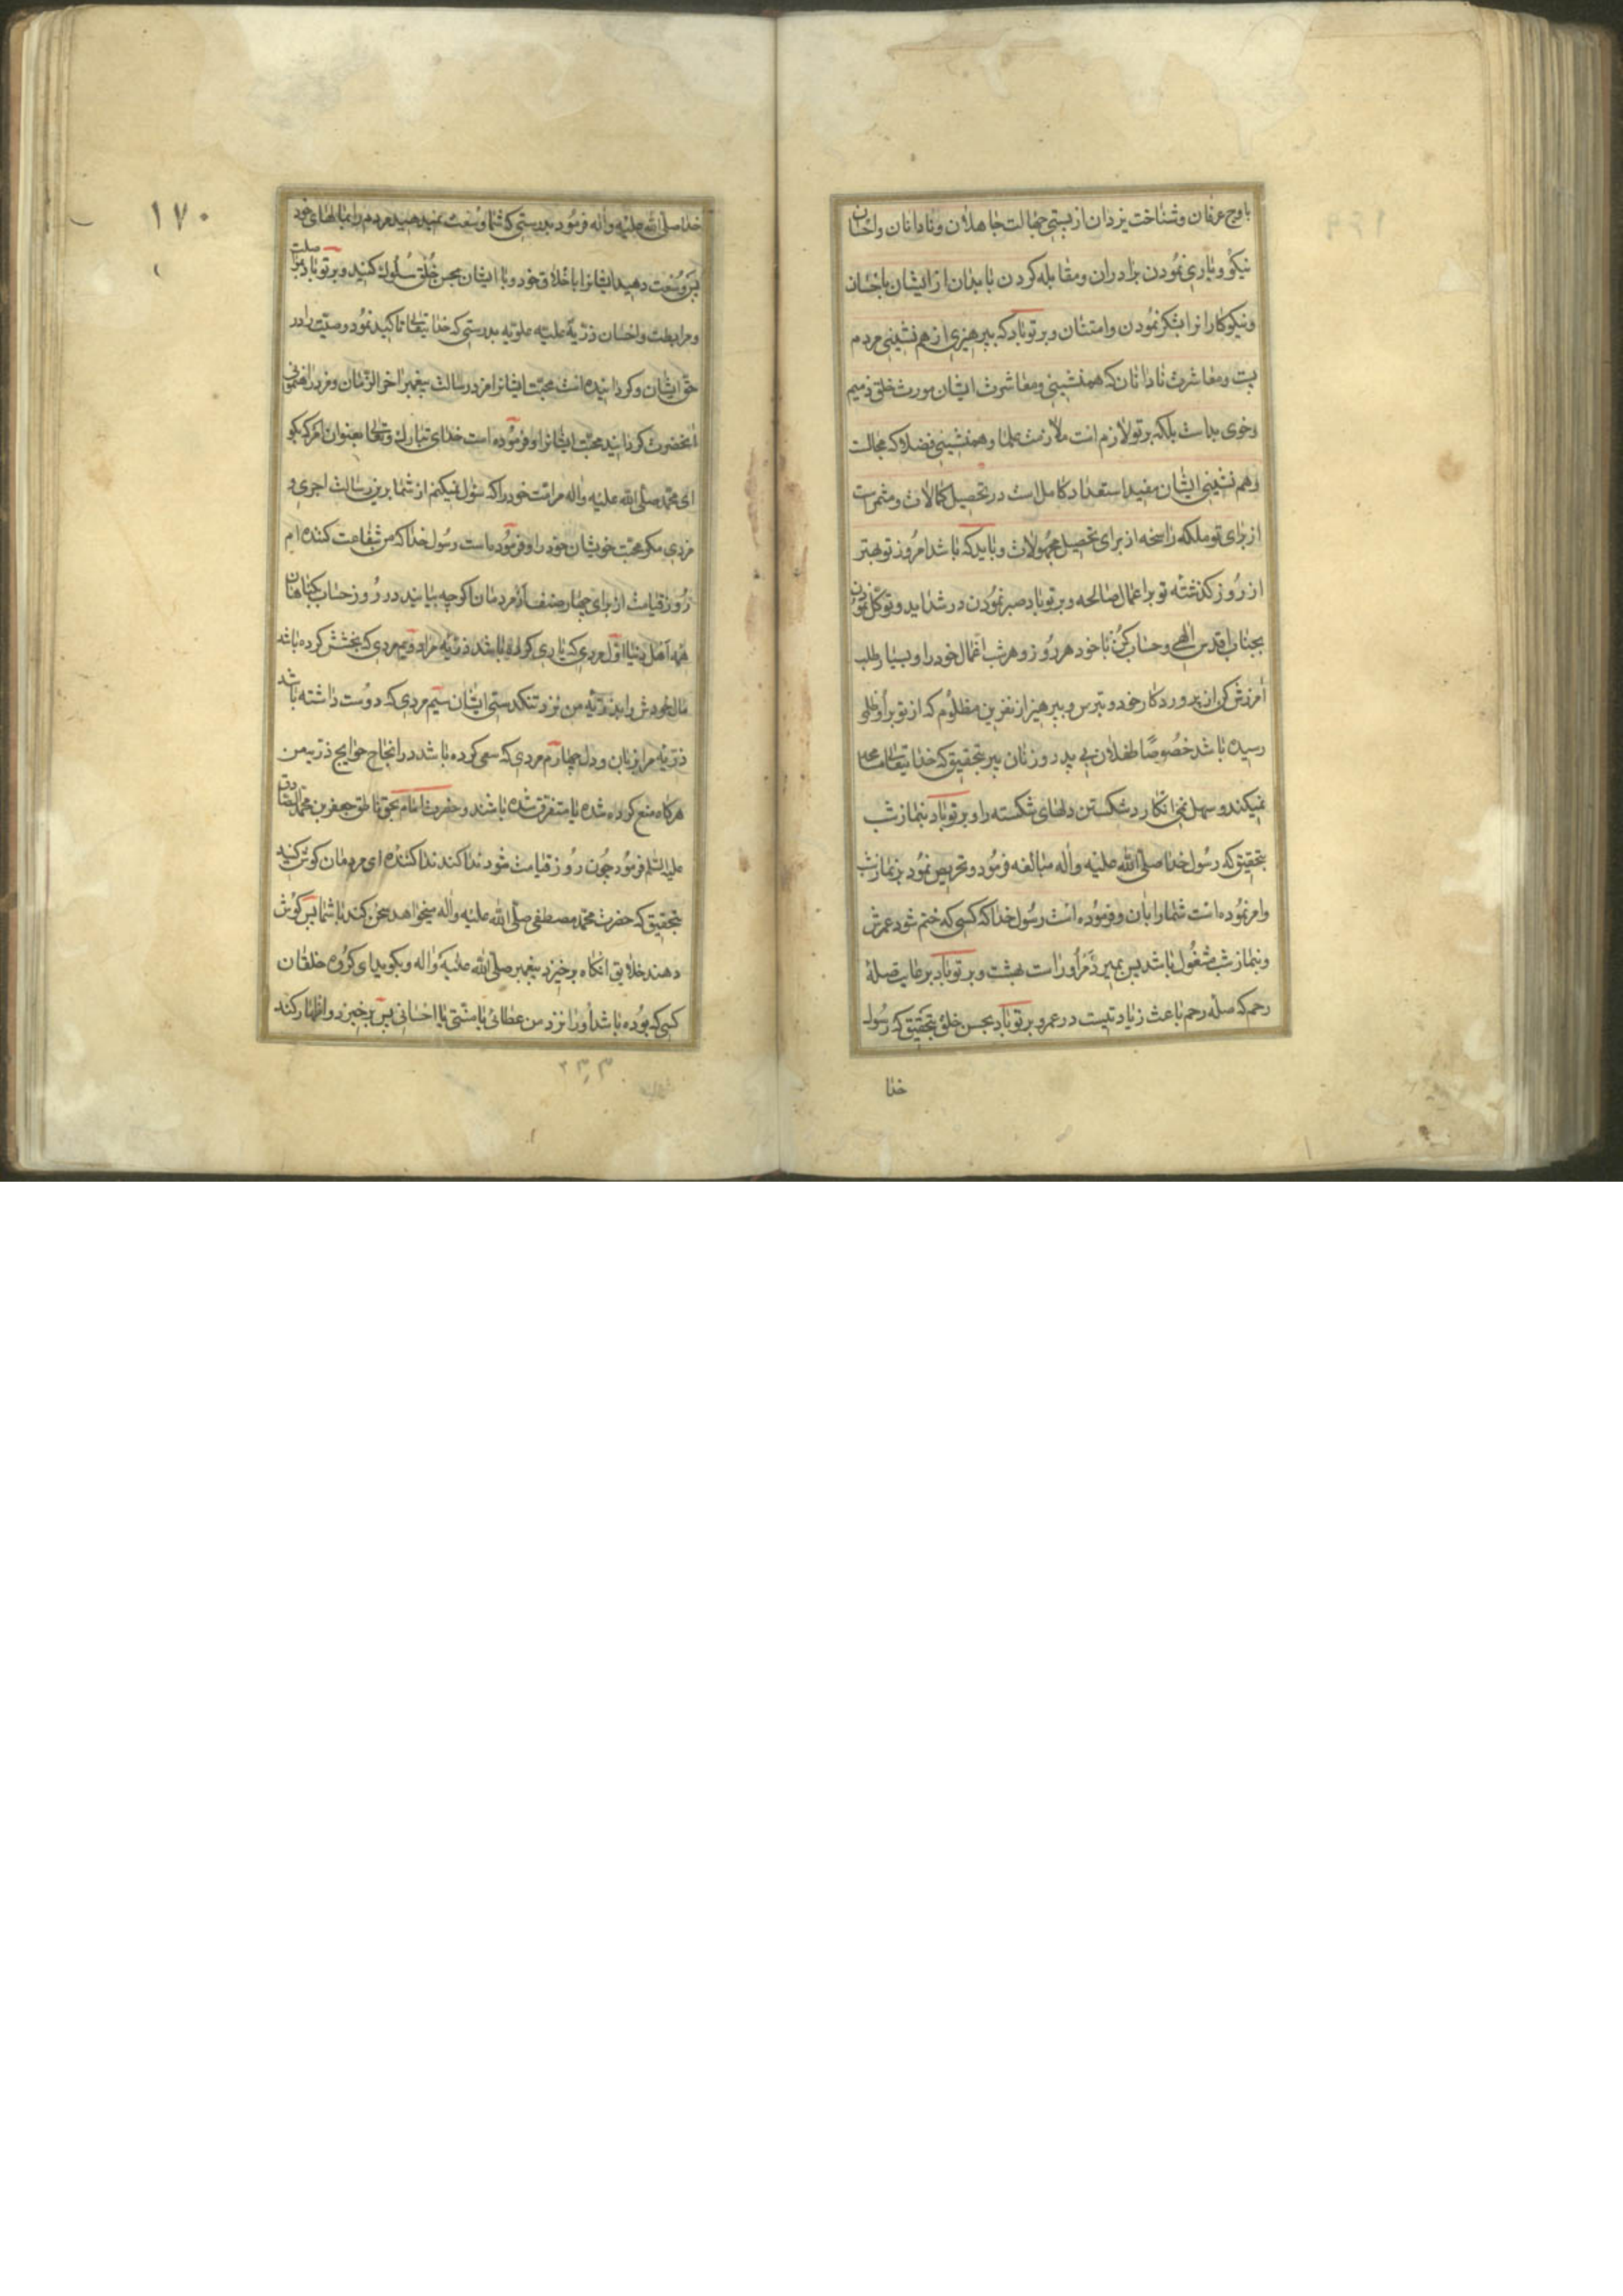 باوج عرفان و شناخت یزدان از پستی جهالت جاهلان و نادانان و احسان
نیکو و یاری نمودن برادران و مقابله کردن با بدان از ایشان باحسان
و نیکوکارانرا بشکر نمودن و امتنان و بر تو باد که بپرهیزی از هم نشینی مردم
پست و معاشرت نادانان که همنشینی و معاشرت ایشان مورث خلق ذمیم
و خوی بد است بلکه بر تو لازم است ملازمت علما و همنشینی فضلا که مجالست
و هم نشینی ایشان مفید استعداد کامل است در تحصیل کمالات و مثمر است
از برای تو ملکه راسخه از برای تحصیل مجهولات و باید که باشد امروز تو بهتر
از روز گذشته تو بر اعمال صالحه و بر تو باد صبر نمودن در شداید و توکل نمودن
بجناب اقدس الهی و حساب کن با خود هر روز و هر شب اعمال خود را و بسیار طلب
آمرزش کن از پروردگار خود و بترس و بپرهیز از نفرین مظلوم که از تو بر او ظلم
رسیده باشد خصوصًا طفلان بی پدر و زنان پیر بتحقیق که خدایتعالی
نمیکند و سهل نمی انگارد شکستن دلهای شکسته را و بر تو باد بنماز شب
بتحقیق که رسول خدا صلی الله علیه و اله مبالغه فرمود و تحریص نمود بر نماز شب
و امر نموده است شما را بان و فرموده است رسول خدا که کسی که ختم شود عمرش
و بنماز شب مشغول باشد پس بمیرد مر او را است بهشت و بر تو باد برعایت صلهٔ
رحم که صله رحم باعث زیادتیست در عمر و بر تو باد بحسن خلق بتحقیق که رسول
خدا
۱۷۰
خدا صلی الله علیه و اله فرمود بدرستی که شما وسعت نمیدهید مردم را بمالهای خود
پس وسعت دهید ایشانرا باخلاق خود و با ایشان بحسن خلق سلوک کنید و بر تو باد صلت
و مرابطت و احسان ذریهٔ علیه علویه بدرستی که خدایتعالی تاکید نمود وصیت را در
حق ایشان و گردانیده است محبت ایشانرا مزد رسالت پیغمبر اخر الزمان و مزد راهنمونی
آنحضرت گردانید محبت ایشانرا و فرموده است خدای تبارک و تعالی بعنوان امر که بگو
ای محمد صلی الله علیه و اله مر امت خود را که سؤل نمیکنم از شما بر این رسالت اجری و
مزدی مگر محبت خویشان خود را و فرموده است رسول خدا که من شفاعت کننده ام
روز قیامت از برای چهار صنف از مردمان اگرچه بیایند در روز حساب با گناهان
همه اهل دنیا اول مردی که یاری کرده باشد ذریهٔ مرا دویم مردی که بخشش کرده باشد
مال خودش را بذریّه من نزد تنگدستی ایشان سیم مردی که دوست داشته باشد
ذریهٔ مرا بزبان و دل چهارم مردی که سعی کرده باشد در انجاح حوایج ذریه من
هرگاه منع کرده شده یا متفرق شده باشند و حضرت امام بحق ناطق جعفر بن محمد الصادق
علیه السلام فرمود چون روز قیامت شود ندا کند ندا کننده ای مردمان گوش کنید
بتحقیق که حضرت محمد مصطفی صلی الله علیه و اله میخواهد سخن کند با شما پس گوش
دهند خلایق آنگاه برخیزد پیغمبر صلی الله علیه و اله و بگوید ای گروه خلقان
کسی که بوده باشد او را نزد من عطائی یا منتی یا احسانی پس برخیزد و اظهار کند